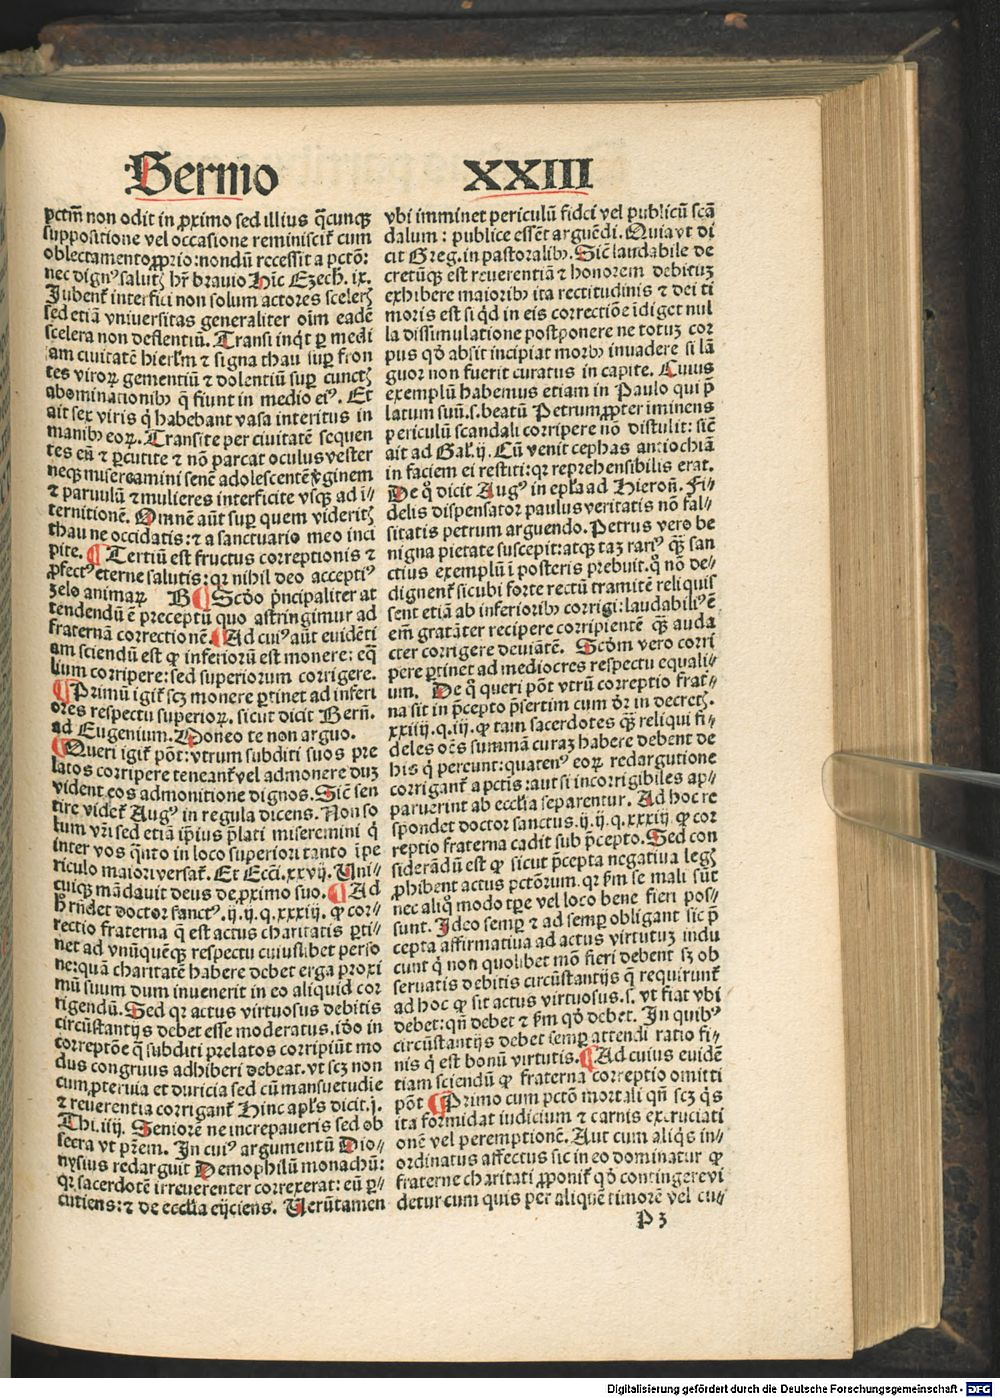 Sermo XXIII
pctm̄ non odit in ꝓximo sed illius q̄cunqꝫ
suppositione vel occasione reminiscit᷑ cum
oblectamento ꝓprio: nondū recessit a pctō:
nec dignꝰ salutꝭ hr̄ brauio Hīc Ezech. ix.
Jubent᷑ interfici non solum actores scelerꝭ
sed etiā vniuersitas generaliter oīm eadē
scelera non deflentiū. Transi inqͥt ꝑ medi
am ciuitatē hierl̄m ⁊ signa thau suꝑ fron
tes viroꝝ gementiū ⁊ dolentiū suꝑ cunctꝭ
abominationibꝫ q̄ fiunt in medio eiꝰ. Et
ait sex viris qͥ habebant vasa interitus in
manibꝫ eoꝝ. Transite per ciuitatē sequen
tes eū ⁊ ꝑcutite ⁊ nō parcat oculus vester
neqꝫ misereamini senē adolescentē ꝟginem
⁊ paruulū ⁊ mulieres interficite vsqꝫ ad i⸗
ternitionē. Omnē aūt suꝑ quem videritꝭ
thau ne occidatis: ⁊ a sanctuario meo inci
pite. ¶ Tertiū est fructus correptionis ⁊
ꝓfectꝰ eterne salutis: qꝛ nihil deo acceptiꝰ
zelo animaꝝ B ¶ Scd̄o pͥncipaliter at
tendendū ē preceptū quo astringimur ad
fraternā correctionē. ¶ Ad cuiꝰ aūt euidēti
am sciendū est ꝙ inferiorū est monere: eq̄
lium corripere: sed superiorum corrigere.
¶ Primū igit᷑ scꝫ monere ꝑtinet ad inferi
ores respectu superioꝝ. sicut dicit Bern̄.
ad Eugenium. Moneo te non arguo.
¶ Queri igit᷑ pōt: vtrum subditi suos pre
latos corripere teneant᷑ vel admonere duꝫ
vident eos admonitione dignos. Sic̄ sen
tire videt᷑ Augꝰ in regula dicens. Non so
lum vr̄i sed etiā ip̄ius p̄lati miseremini qͥ
inter vos q̄nto in loco superiori tanto ī pe
riculo maiori versat᷑. Et Ecci. xxvij. Uni⸗
cuiqꝫ mādauit deus de ꝓximo suo. ¶ Ad
h̓ rn̄det doctor sanctꝰ. ij. ij. q. xxxiij. ꝙ cor⸗
rectio fraterna q̄ est actus charitatis ꝑti⸗
net ad vnūquēqꝫ respectu cuiuslibet perso
ne: quā charitatē habere debet erga proxi
mū suum dum inuenerit in eo aliquid cor
rigendū. Sed qꝛ actus virtuosus debitis
circūstantijs debet esse moderatus. iō in
correptōe q̄ subditi prelatos corripiūt mo
dus congruus adhiberi debeat. vt scꝫ non
cum ꝓteruia et duricia sed cū mansuetudie
⁊ reuerentia corrigant᷑ Hinc apl̄s dicit. j.
Thi. iiij. Seniorē ne increpaueris sed ob
secra vt pr̄em. In cuiꝰ argumentū Dio⸗
nysius redarguit Demophilū monachū:
qꝛ sacerdotē irreuerenter correxerat: eū ꝑ⸗
cutiens: ⁊ de eccl̄ia eijciens. Uerūtamen
vbi imminet periculū fidei vel publicū scā
dalum: publice essēt arguēdi. Quia vt di
cit Greg. in pastoralibꝫ. Sic̄ laudabile de
cretūqꝫ est reuerentiā ⁊ honorem debituꝫ
exhibere maioribꝫ ita rectitudinis ⁊ dei ti
moris est si qͥd in eis correctiōe īdiget nul
la dissimulatione postponere ne totuꝫ cor
pus qd̓ absit incipiat morbꝫ inuadere si lā
guor non fuerit curatus in capite. Cuius
exemplū habemus etiam in Paulo qui p̄
latum suū. s. beatū Petrum ꝓpter iminens
periculū scandali corripere nō distulit: sic̄
ait ad Gal̓. ij. Cū venit cephas antiochiā
in faciem ei restiti: qꝛ reprehensibilis erat.
De qͦ dicit Augꝰ in epl̄a ad Hieron̄. Fi⸗
delis dispensator paulus veritatis nō fal⸗
sitatis petrum arguendo. Petrus vero be
nigna pietate suscepit: atqꝫ taꝫ rarꝰ qꝫ̄ san
ctius exemplū ī posteris prebuit. qͦ nō de⸗
dignent᷑ sicubi forte rectū tramitē reliquis
sent etiā ab inferioribꝫ corrigi: laudabiliꝰ ē
em̄ gratāter recipere corripientē qꝫ̄ auda
cter corrigere deuiātē. Scd̓m vero corri
pere ꝑtinet ad mediocres respectu equali⸗
um. De qͦ queri pōt vtrū correptio frat᷑⸗
na sit in p̄cepto p̄sertim cum dr̄ in decretꝭ.
xxiiij. q. iij. ꝙ tam sacerdotes qꝫ̄ reliqui fi⸗
deles oēs summā curaꝫ habere debent de
his qͥ pereunt: quatenꝰ eoꝝ redargutione
corrigant᷑ a pctīs: aut si incorrigibiles ap⸗
paruerint ab eccl̄ia separentur. Ad hoc re
spondet doctor sanctus. ij. ij. q. xxxiij ꝙ cor
reptio fraterna cadit sub p̄cepto. Sed con
siderādū est ꝙ sicut p̄cepta negatiua legꝭ
ꝓhibent actus pctōrum. qꝛ ẜm se mali sūt
nec aliqͦ modo tꝑe vel loco bene fieri pos⸗
sunt. Ideo semꝑ ⁊ ad semꝑ obligant sic p̄
cepta affirmatiua ad actus virtutuꝫ indu
cunt qͥ non quolibet mō fieri debent sꝫ ob
seruatis debitis circūstantijs q̄ requirunt᷑
ad hoc ꝙ sit actus virtuosus. s. vt fiat vbi
debet: qn̄ debet ⁊ ẜm qd̓ debet. In quibꝰ
circūstantijs debet semꝑ attendi ratio fi⸗
nis qͥ est bonū virtutis. ¶ Ad cuius euidē
tiam sciendū ꝙ fraterna correptio omitti
pōt ¶ Primo cum pctō mortali qn̄ scꝫ qͥs
ita formidat iudicium ⁊ carnis excruciati
onē vel peremptionē. Aut cum aliqͥs in⸗
ordinatus affectus sic in eo dominatur ꝙ
fraterne charitati ꝓponit᷑ qd̓ contingere vi
detur cum quis per aliquē timorē vel cu⸗
P 3
Digitalisierung gefördert durch die Deutsche Forschungsgemeinschaft - DFG